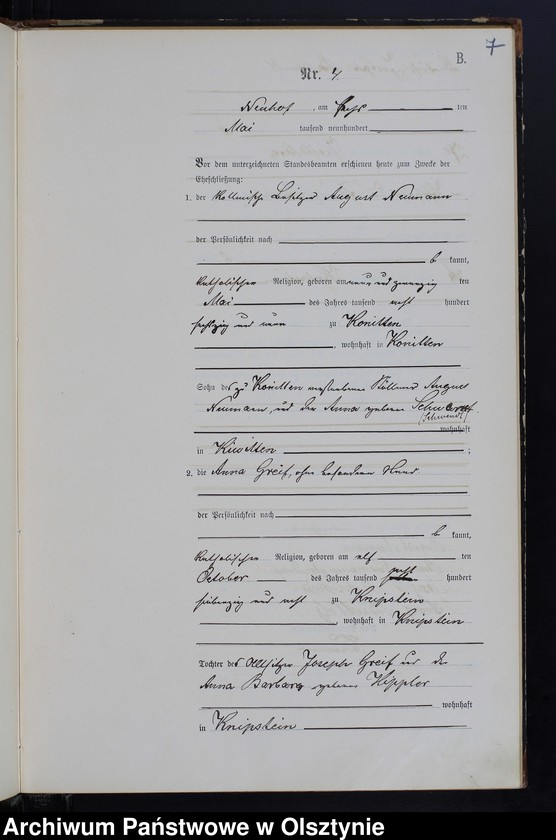 7
B.
Nr. 4.
Neuhof, am ten
Mai tausend neunhundert
Vor dem unterzeichneten Standesbeamten erschienen heute zum Zwecke der
Eheschließung:
1. der Besitzer August Neumann
der Persönlichkeit nach
kannt,
katholischer Religion, geboren am neun und zwanzig ten
Mai des Jahres tausend acht hundert
sechszig und neun zu Konitten
, wohnhaft in Konitten
Sohn des zu Konitten verstorbenen August
Neumann, und der Anna geborene
(Schwendt)
wohnhaft
in Kiwitten ;
2. die Anna Greif, ohne besonderen Stand
der Persönlichkeit nach
kannt,
katholischer Religion, geboren am elf ten
October des Jahres tausend acht hundert
siebenzig und acht zu Knipstein
, wohnhaft in Knipstein
Tochter des Altsitzer Joseph Greif und der
Anna Barbara geborene Hippler
wohnhaft
in Knipstein
Archiwum Państwowe w Olsztynie